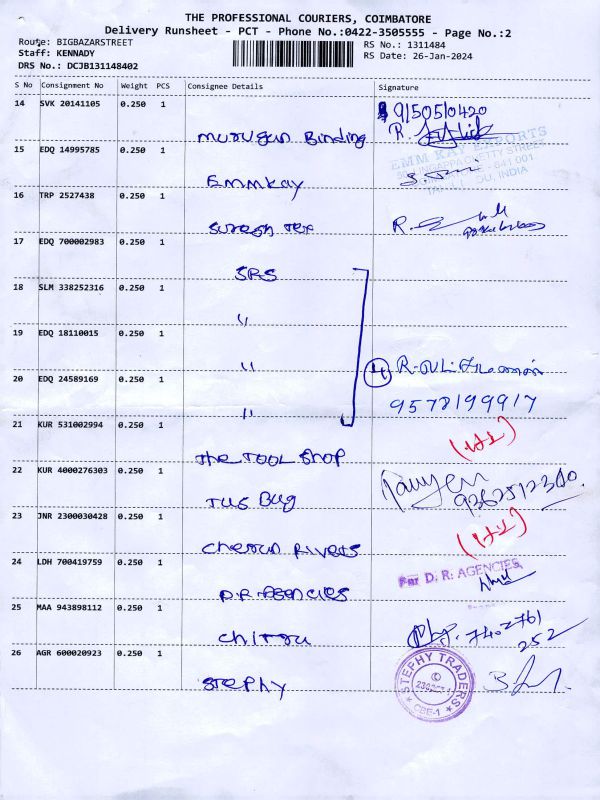 THE PROFESSIONAL COURIERS, COIMBATORE
Delivery Runsheet - PCT - Phone No.:0422-3505555 - Page No.:2
Route: BIGBAZARSTREET
RS No.: 1311484
Staff: KENNADY
RS Date: 26-Jan-2024
DRS No.: DCJB131148402
S No Consignment No Weight PCS Consignee Details Signature
14 SVK 20141105 0.250 1
9150510420
Murugan Binding R.
15 EDQ 14995785 0.250 1
EMM KAY EXPORTS
641 001
INDIA
Emmkay
16 TRP 2527438 0.250 1
Suresh Tex R.
17 EDQ 700002983 0.250 1
SRS
18 SLM 338252316 0.250 1
"
19 EDQ 18110015 0.250 1
" 4 R.
20 EDQ 24589169 0.250 1
" 9578199917
21 KUR 531002994 0.250 1
The TOOL Shop
22 KUR 4000276303 0.250 1
Tus Bug 9362512340.
23 JNR 2300030428 0.250 1
Rivets
24 LDH 700419759 0.250 1
For D. R. AGENCIES,
D.R. Agencies
25 MAA 943898112 0.250 1
7402761
252
26 AGR 600020923 0.250 1
STEPHY TRADERS
CBE-1
Stephy